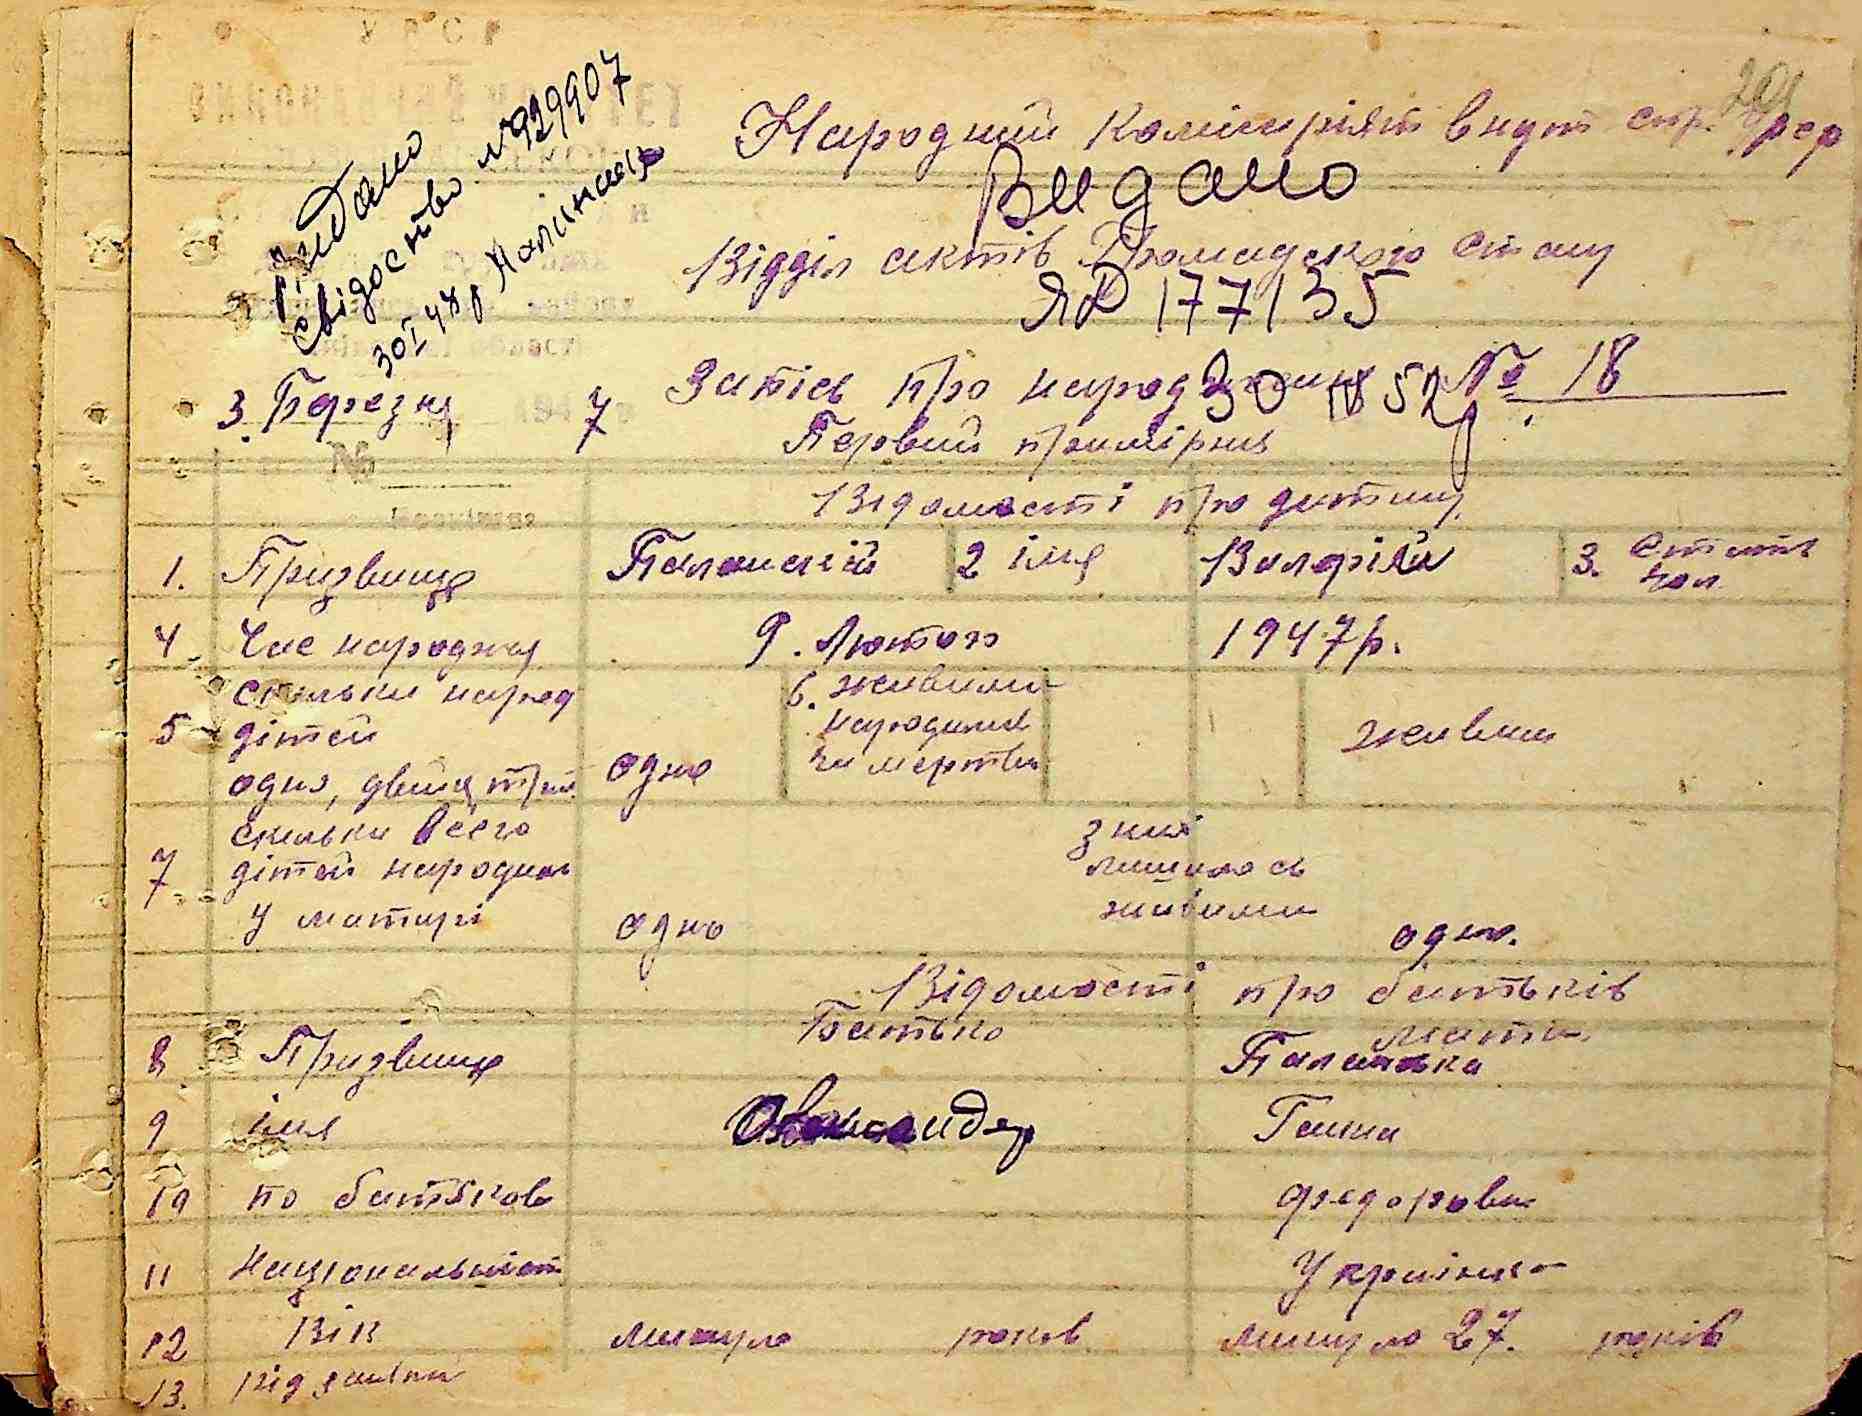 Видано
свідоство №929907
30 I 48р
291
Народний Комісиріят внут спр. рср
Видано
Відділ актів Громадского Стану
ЯР 177135
Запісь про народження № 18
30 IV 52р.
3. Березня 7
Первий примірник
№
Відомості про дитину
1. Призвище Паланский 2 імя Валерій 3. Стать чол.
4 Час народжня 9. Лютого 1947р.
5 скильки народ дітей одно, двійц, трий одно 6. живими народились чи мертви живим
7 скильки всего дітей народил у матері одно з них лишилось живими одно.
Відомості про батьків
Батько Мати
8 Призвище Паланська
9 імя Олександр Ганна
10 по батькові Федоровна
11 Національніст Українка
12 Вік минуло років минуло 27. років
13.